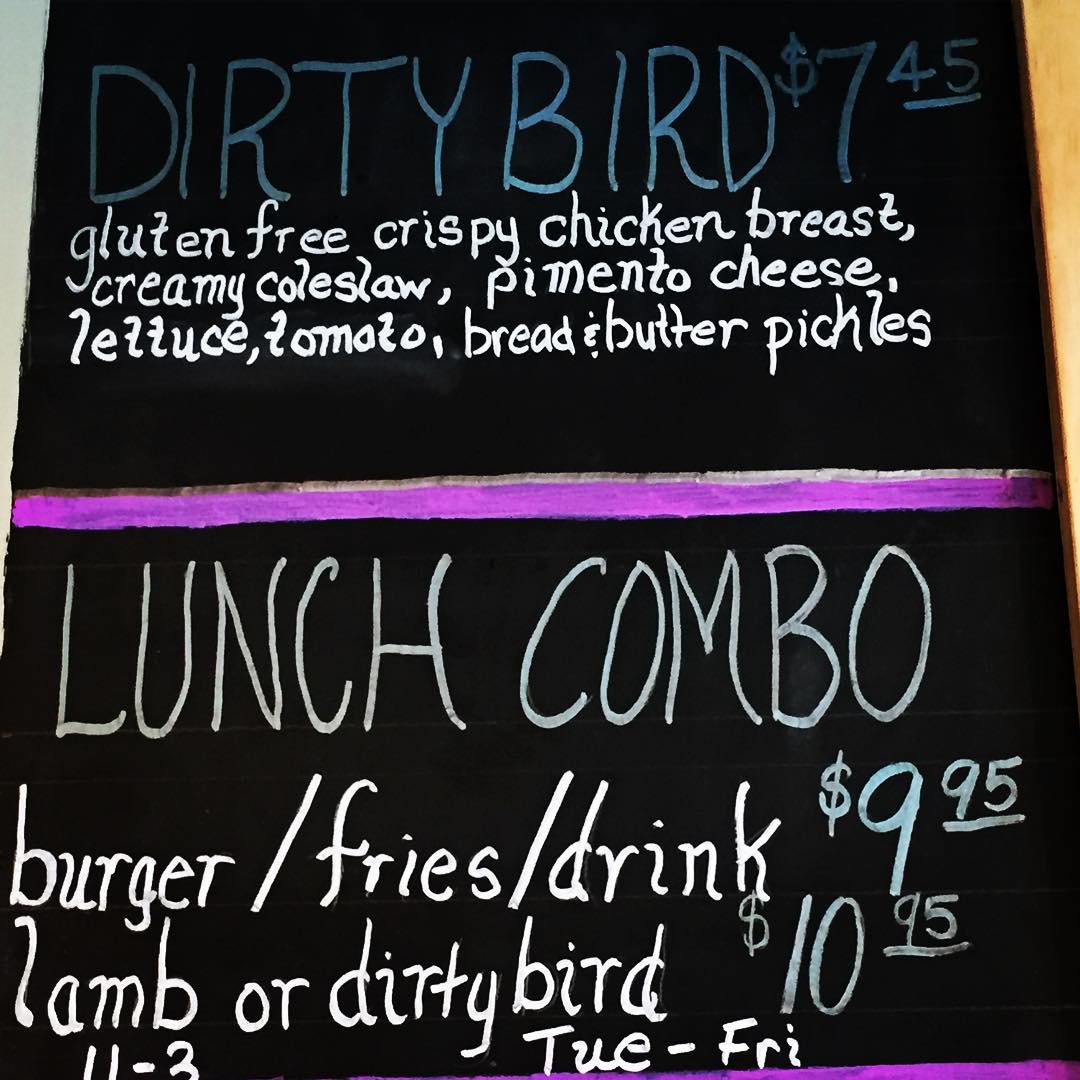 DIRTY BIRD $7 45
gluten free crispy chicken breast,
creamy coleslaw, pimento cheese,
lettuce, tomato, bread & butter pickles
LUNCH COMBO
burger / fries / drink $9 95
lamb or dirty bird $10 95
11-3 Tue - Fri